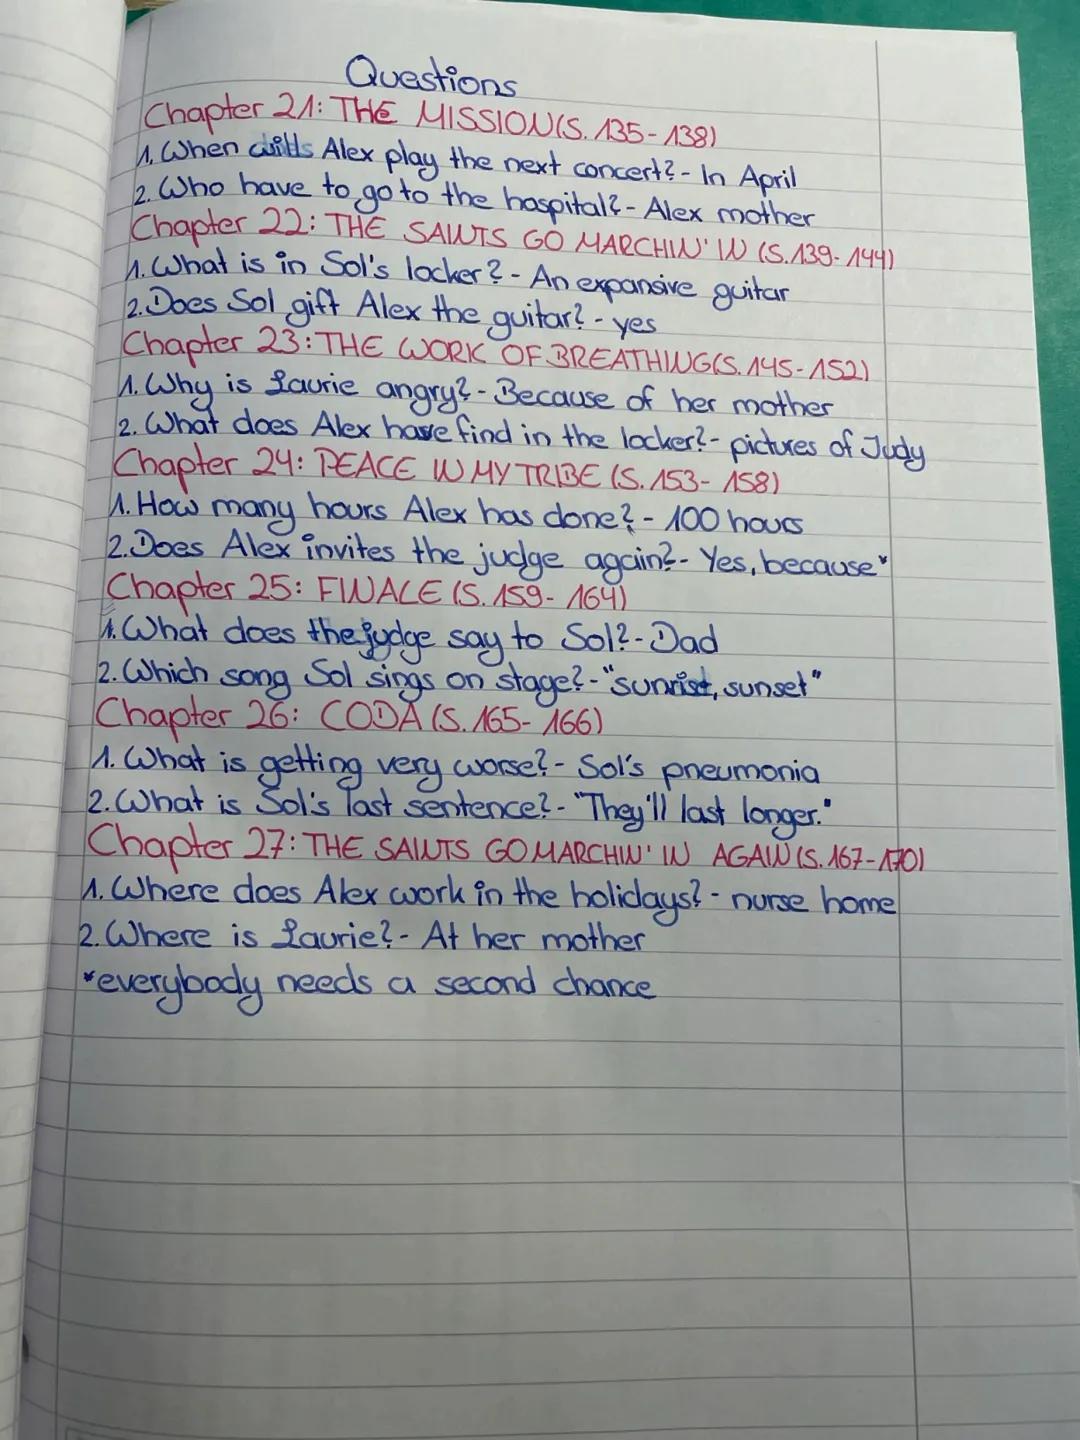 Questions
Chapter 21: THE MISSION (S. 135-138)
1. When wills Alex play the next concert? - In April
2. Who have to go to the hospital? - Alex mother
Chapter 22: THE SAINTS GO MARCHIN' IN (S. 139-144)
1. What is in Sol's locker? - An expansive guitar
2. Does Sol gift Alex the guitar? - yes
Chapter 23: THE WORK OF BREATHING (S. 145-152)
1. Why is Laurie angry? - Because of her mother
2. What does Alex have find in the locker? - pictures of Judy
Chapter 24: PEACE IN MY TRIBE (S. 153-158)
1. How many hours Alex has done? - 100 hours
2. Does Alex invites the judge again? - Yes, because*
Chapter 25: FINALE (S. 159-164)
1. What does the judge say to Sol? - Dad
2. Which song Sol sings on stage? - "sunrist, sunset"
Chapter 26: CODA (S. 165-166)
1. What is getting very worse? - Sol's pneumonia
2. What is Sol's last sentence? - "They'll last longer."
Chapter 27: THE SAINTS GO MARCHIN' IN AGAIN (S. 167-170)
1. Where does Alex work in the holidays? - nurse home
2. Where is Laurie? - At her mother
*everybody needs a second chance